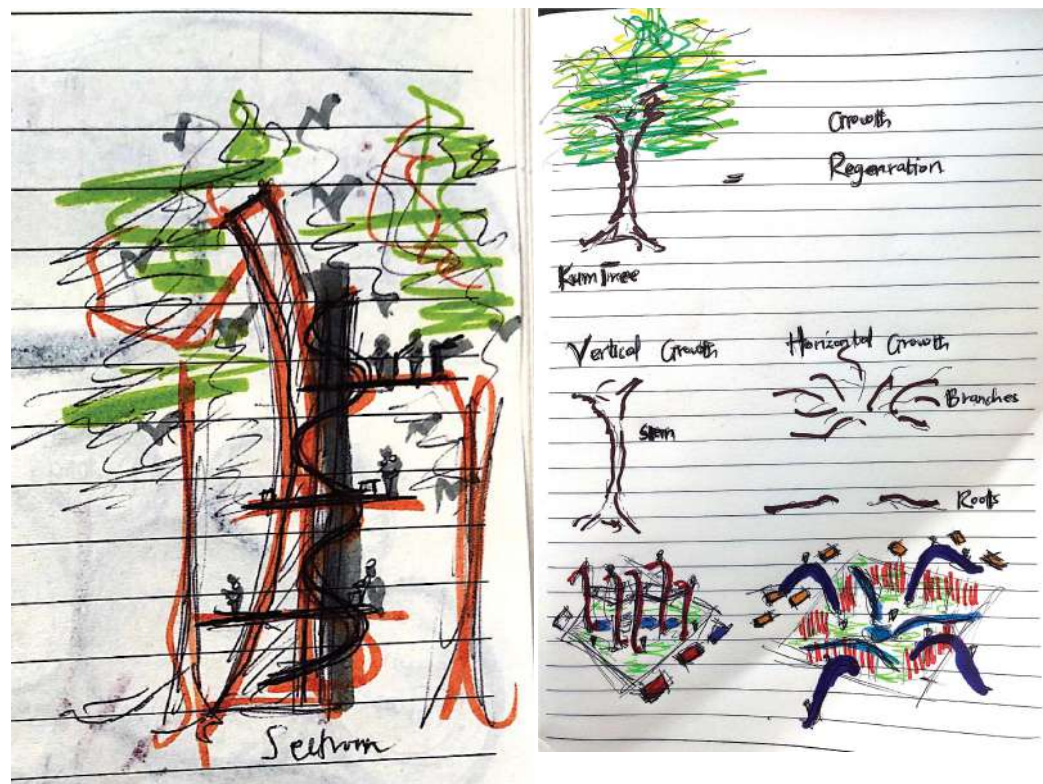 Section
Growth
Regenration
Kum Tree
Vertical Growth
Horizontal Growth
Branches
Stem
Roots